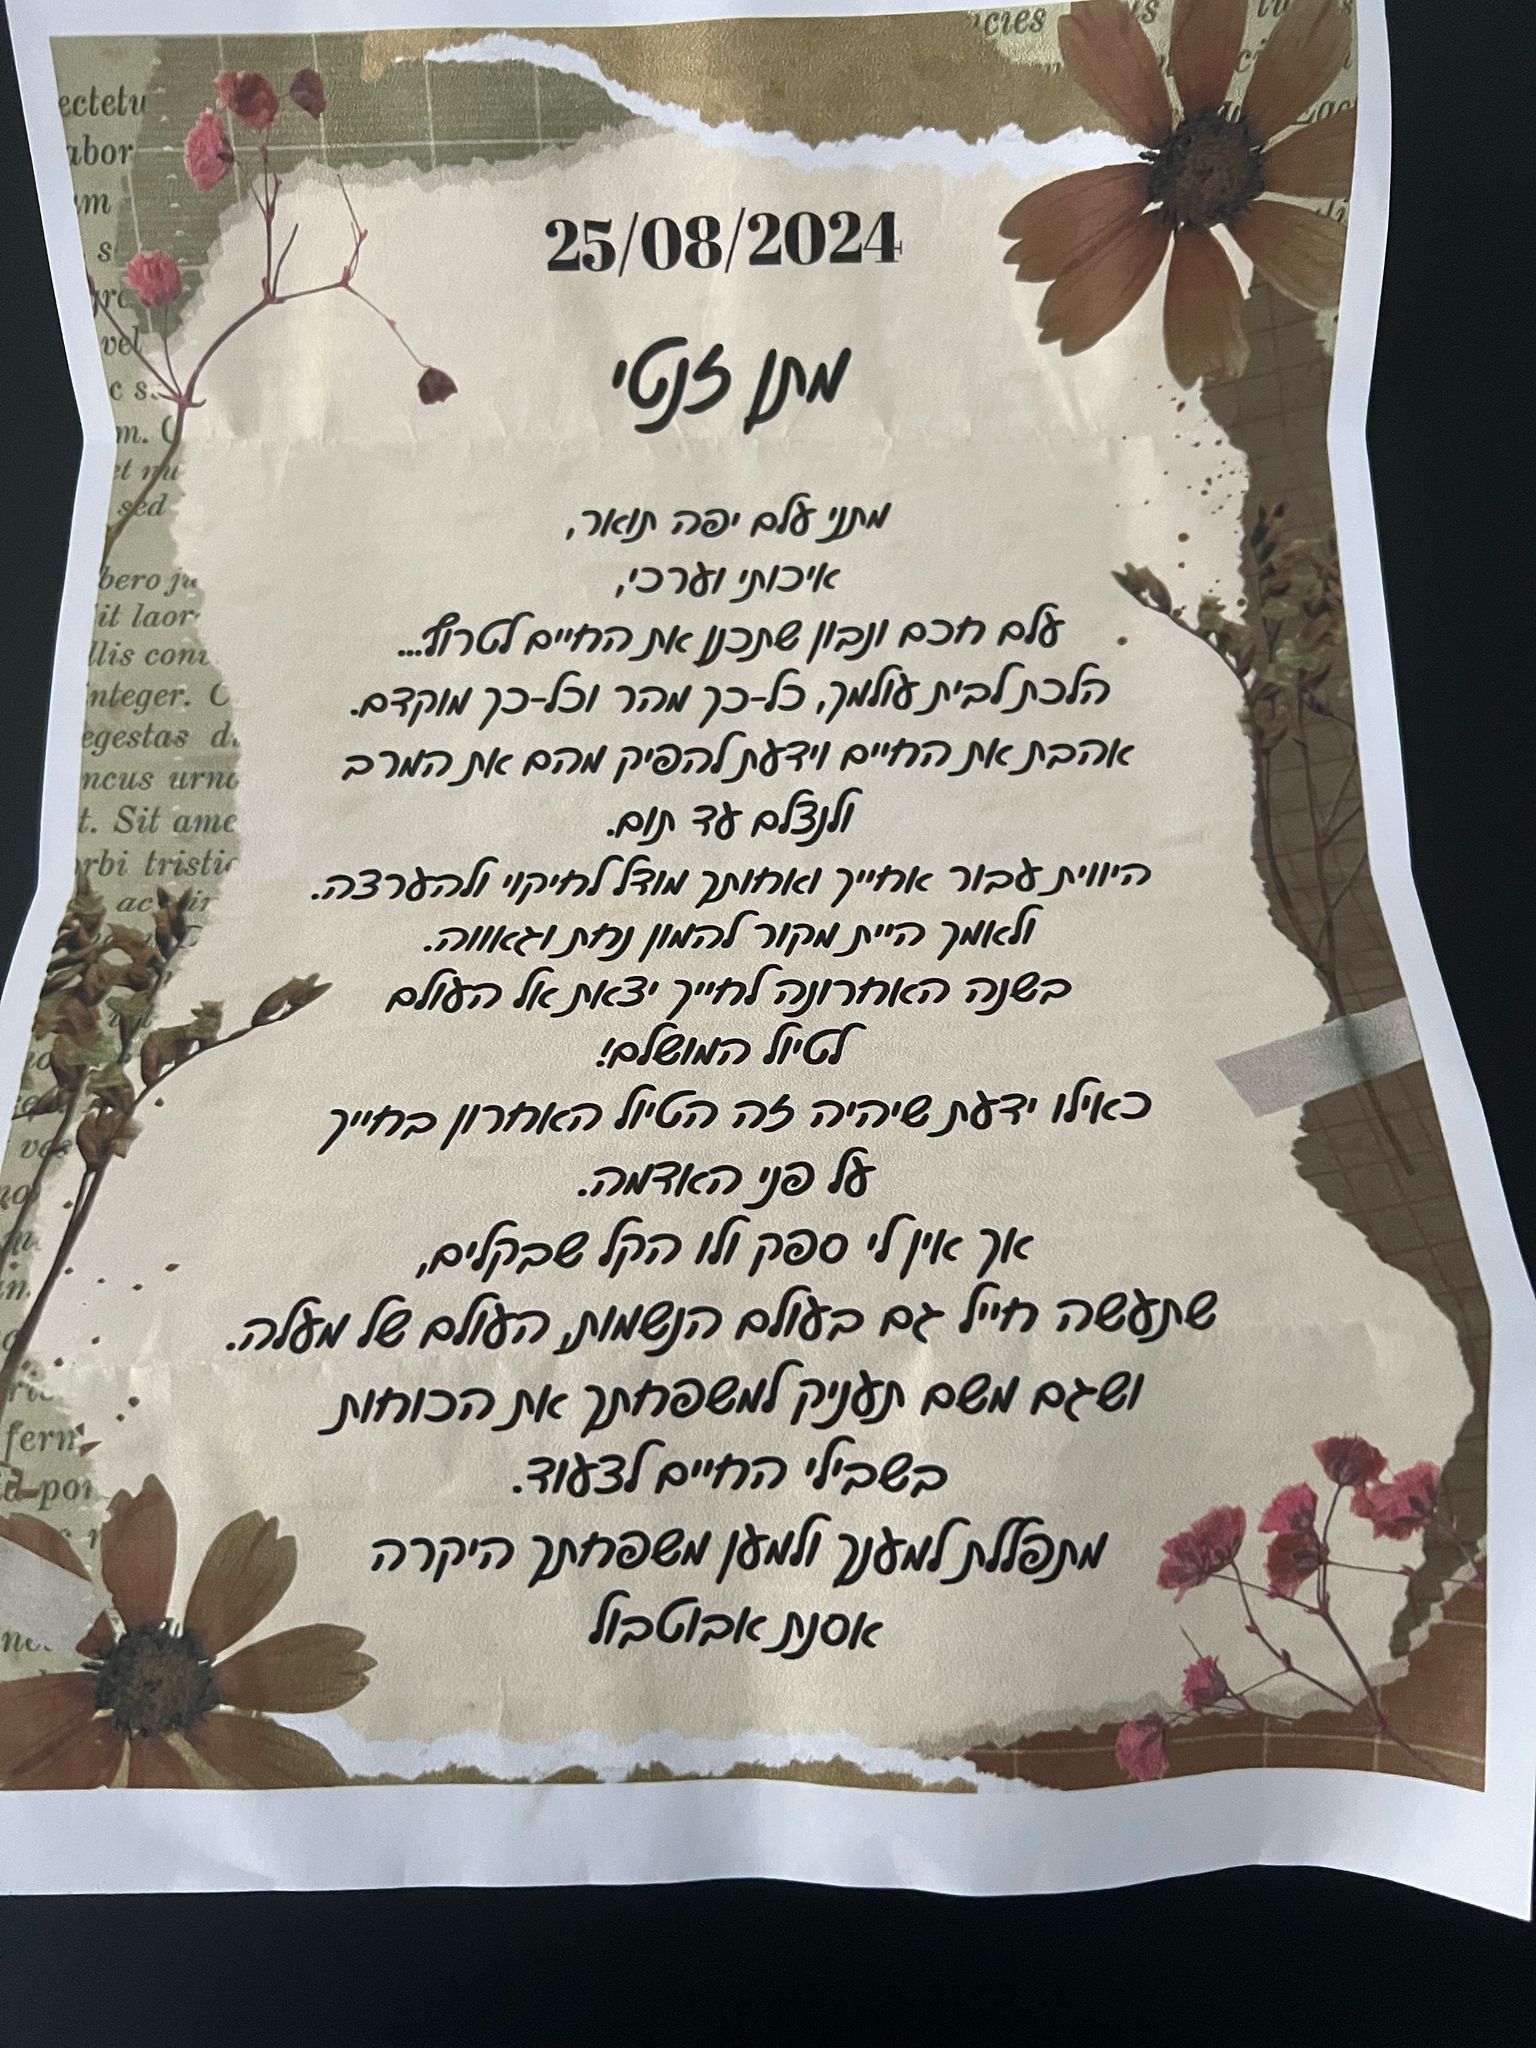 25/08/2024
מתן זנטי
מתני עלם יפה תואר,
איכותי וערכי,
עלם חכם ונבון שתכנן את החיים לטרוף...
הלכת לבית עולמך, כל-כך מהר וכל-כך מוקדם.
אהבת את החיים וידעת להפיק מהם את המרב
ולנצלם עד תום.
היווית עבור אחייך ואחותך מודל לחיקוי ולהערצה.
ולאמך היית מקור להמון נחת וגאווה.
בשנה האחרונה לחייך יצאת אל העולם
לטיול המושלם!
כאילו ידעת שיהיה זה הטיול האחרון בחייך
על פני האדמה.
אך אין לי ספק ולו הקל שבקלים,
שתעשה חייל גם בעולם הנשמות, העולם של מעלה.
ושגם משם תעניק למשפחתך את הכוחות
בשבילי החיים לצעוד.
מתפללת למענך ולמען משפחתך היקרה
אסנת אבוטבול